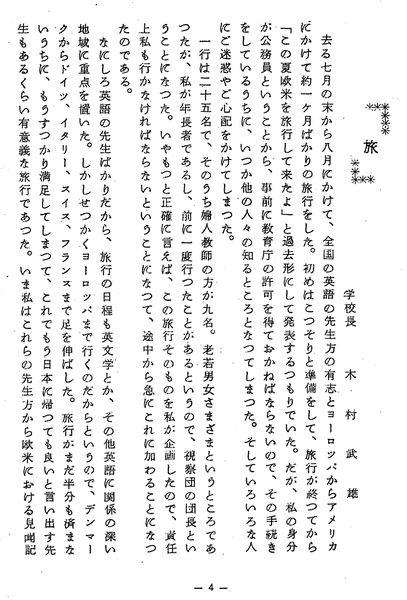 旅
学校長　木村武雄
去る七月の末から八月にかけて、全国の英語の先生方の有志とヨーロッパからアメリカ
にかけて約一ケ月ばかりの旅行をした。初めはこつそりと準備をして、旅行が終つてから
「この夏欧米を旅行して来たよ」と過去形にして発表するつもりでいた。だが、私の身分
が公務員ということから、事前に教育庁の許可を得ておかねばならないので、その手続き
をしているうちに、いつか他の人々の知るところとなつてしまつた。そしていろいろな人
にご迷惑やご心配をかけてしまつた。
一行は二十五名で、そのうち婦人教師の方が九名。老若男女さまざまというところであ
つたが、私が年長者であるし、前に一度行つたことがあるというので、視察団の団長とい
うことになつた。いやもつと正確に言えば、この旅行そのものを私が企画したので、責任
上私も行かなければならないということになつて、途中から急にこれに加わることになつ
たのである。
なにしろ英語の先生ばかりだから、旅行の日程も英文学とか、その他英語に関係の深い
地域に重点を置いた。しかしせつかくヨーロッパまで行くのだからというので、デンマー
クからドイツ、イタリー、スイス、フランスまで足を伸ばした。旅行がまだ半分も済まな
いうちに、もうすつかり満足してしまつて、これでもう日本に帰つても良いと言い出す先
生もあるくらい有意義な旅行であつた。いま私はこれらの先生方から欧米における見聞記
— 4 —